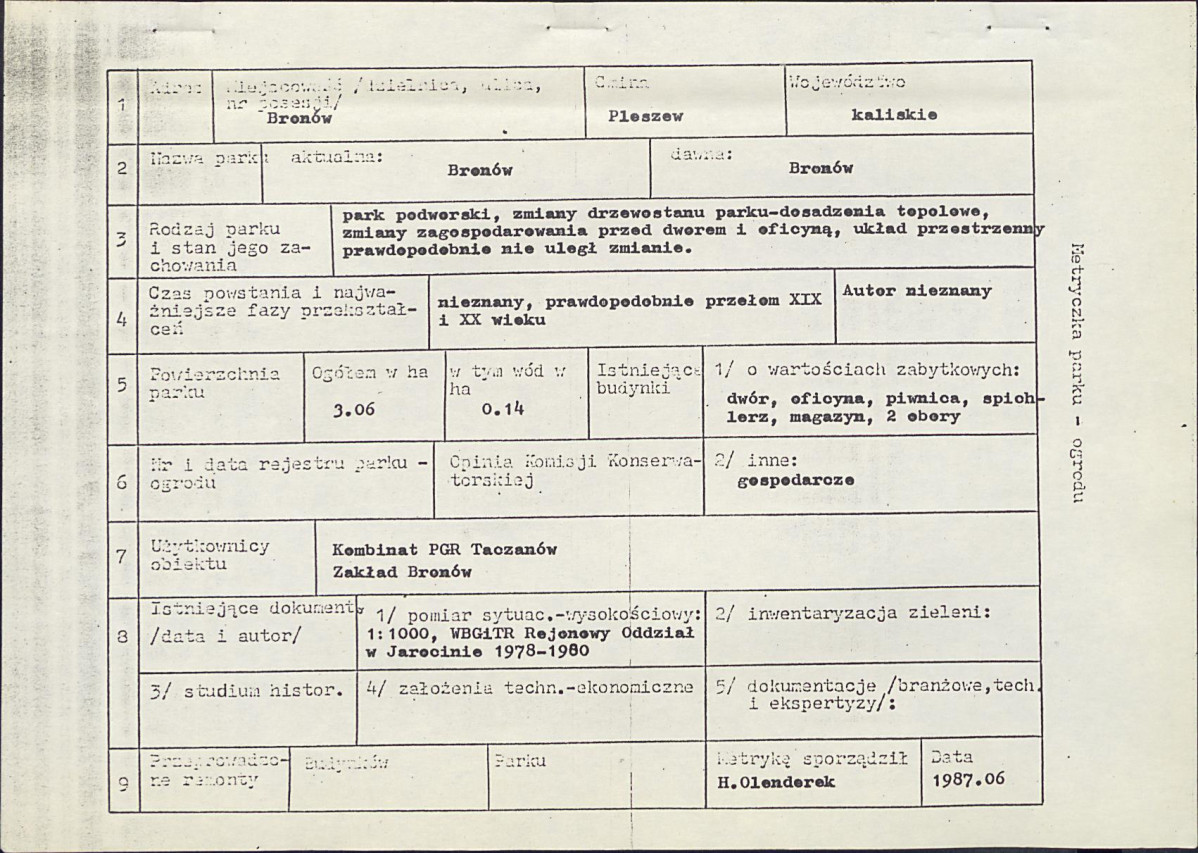 1
Adres
Miejscowość /dzielnica, ulica,
nr posesji/
Bronów
Gmina
Pleszew
Województwo
kaliskie
2
Nazwa parku
aktualna:
Bronów
dawna:
Bronów
3
Rodzaj parku
i stan jego za-
chowania
park podworski, zmiany drzewostanu parku-dosadzenia topolowe,
zmiany zagospodarowania przed dworem i oficyną, układ przestrzenny
prawdopodobnie nie uległ zmianie.
4
Czas powstania i najwa-
żniejsze fazy przekształ-
ceń
nieznany, prawdopodobnie przełom XIX
i XX wieku
Autor nieznany
5
Powierzchnia
parku
Ogółem w ha
3.06
w tym wód w
ha
0.14
Istniejące
budynki
1/ o wartościach zabytkowych:
dwór, oficyna, piwnica, spich-
lerz, magazyn, 2 obory
6
Nr i data rejestru parku -
ogrodu
Opinia Komisji Konserwa-
torskiej
2/ inne:
gospodarcze
7
Użytkownicy
obiektu
Kombinat PGR Taczanów
Zakład Bronów
8
Istniejące dokumenty
/data i autor/
1/ pomiar sytuac.-wysokościowy:
1:1000, WBGiTR Rejonowy Oddział
w Jarocinie 1978-1980
2/ inwentaryzacja zieleni:
3/ studium histor.
4/ założenia techn.-ekonomiczne
5/ dokumentacje /branżowe,tech.
i ekspertyzy/:
9
Przeprowadzo-
ne remonty
Budynków
Parku
Metrykę sporządził
H.Olenderek
Data
1987.06
Metryczka parku - ogrodu